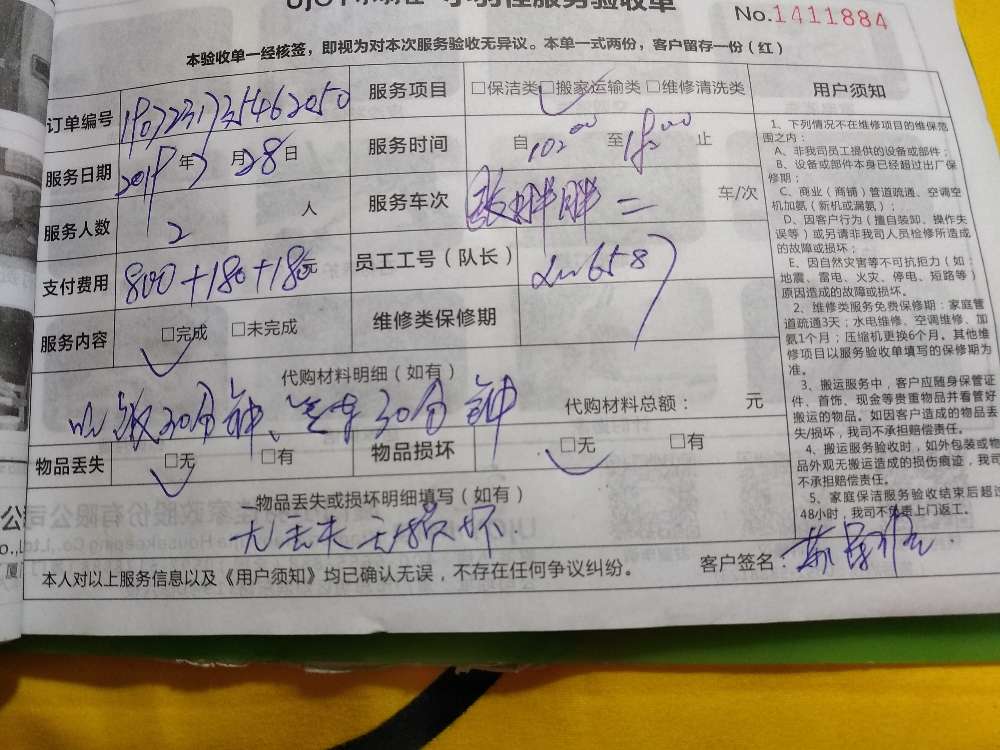 服务验收单
No.1411884
本验收单一经核签，即视为对本次服务验收无异议。本单一式两份，客户留存一份（红）
订单编号
服务项目 □保洁类 □搬家运输类 □维修清洗类
用户须知
服务日期 2019年7月28日
服务时间 自 至 止
服务人数 2 人
服务车次 二 车/次
支付费用 800+180+180元
员工工号（队长）
服务内容 □完成 □未完成
维修类保修期
代购材料明细（如有）
30分钟、30分钟
代购材料总额： 元
物品丢失 □无 □有
物品损坏 □无 □有
物品丢失或损坏明细填写（如有）
无丢失无损坏
本人对以上服务信息以及《用户须知》均已确认无误，不存在任何争议纠纷。
客户签名：
1、下列情况不在维修项目的维保范
围之内：
A、非我司员工提供的设备或部件；
B、设备或部件本身已经超过出厂保
修期；
C、商业（商铺）管道疏通、空调空
机加氨（新机或漏氨）；
D、因客户行为（擅自装卸、操作失
误等）或另请非我司人员检修所造成
的故障或损坏；
E、因自然灾害等不可抗拒力（如：
地震、雷电、火灾、停电、短路等）
原因造成的故障或损坏。
2、维修类服务免费保修期：家庭管
道疏通3天；水电维修、空调维修、加
氨1个月；压缩机更换6个月。其他维
修项目以服务验收单填写的保修期为
准。
3、搬运服务中，客户应随身保管证
件、首饰、现金等贵重物品并看管好
搬运的物品。如因客户造成的物品丢
失/损坏，我司不承担赔偿责任。
4、搬运服务验收时，如外包装或物
品外观无搬运造成的损伤痕迹，我司
不承担赔偿责任。
5、家庭保洁服务验收结束后超过
48小时，我司不负责上门返工。